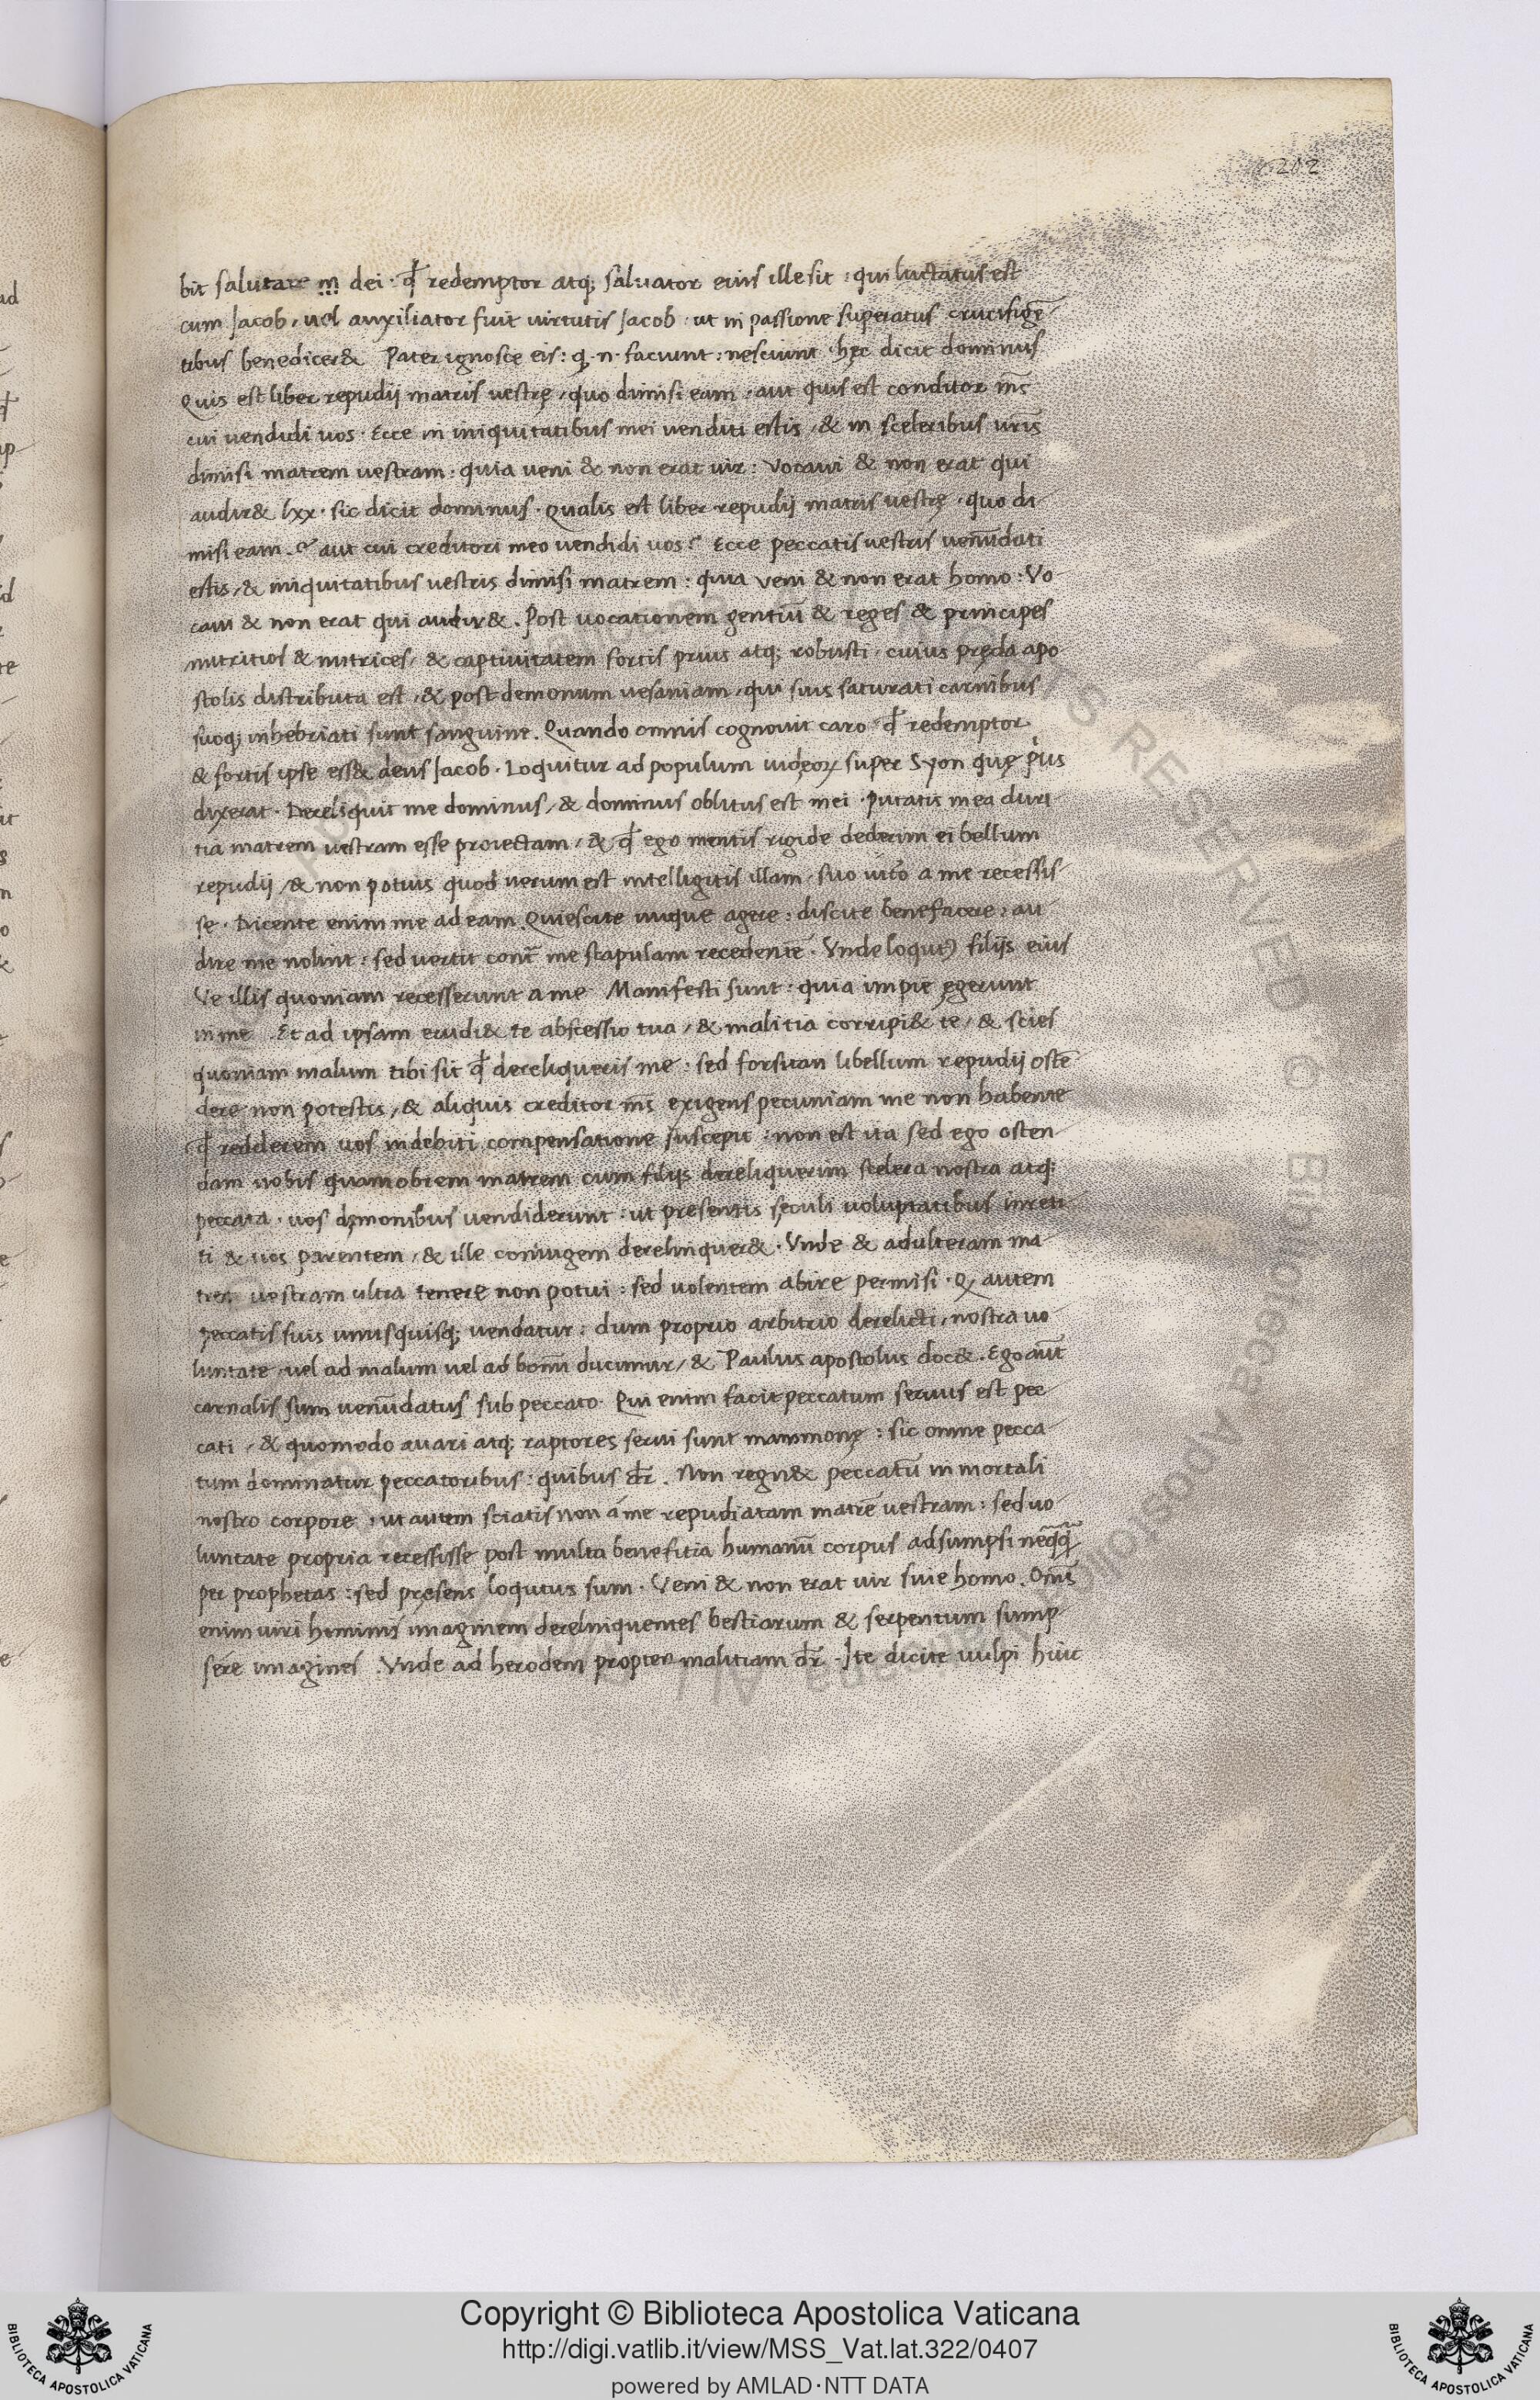 202
bit salutare m dei : qđ redemptor atq; saluator eius ille sit : qui luctatus est
cum Jacob, uel auxiliator fuit uirtutis Jacob · ut in passione superatus crucifigē
tibus benediceret Pater ignosce eis : q · n · faciunt : nesciunt · hęc dicit dominus
Quis est liber repudij matris uestrę, quo dimisi eam, aut quis est conditor m̄s
cui uendidi uos · Ecce in iniquitatibus mei uenditi estis, & in sceleribus ur̄is
dimisi matrem uestram · quia ueni & non erat uir : Vocaui & non erat qui
audir& lxx · sic dicit dominus · Qualis est liber repudij matris uestrę · quo di
misi eam · aut cui creditori meo uendidi uos? Ecce peccatis uestris uenūdati
estis, & iniquitatibus uestris dimisi matrem : quia veni & non erat homo : Vo
caui & non erat qui audir& . Post uocationem gentiū & reges & principes
nutritios & nutrices, & captiuitatem fortis prius atq; robusti, cuius pręda apo
stolis distributa est, & post demonum uesaniam, qui suis saturati carnibus
suoq; inhebriati sunt sanguine. Quando omnis cognouit caro qđ redemptor
& fortis ipse ess& deus Jacob · Loquitur ad populum iudęoꝝ super Syon quę p̓us
dixerat · Dereliquit me dominus, & dominus oblitus est mei · Putatis mea duri
tia matrem uestram esse proiectam, & qđ ego mentis rigide dederim ei bellum
repudij, & non potuis quod uerum est intelligitis illam, suo uito a me recessis
se · Dicente enim me ad eam. Quiescite inique agere : discite benefacere : au
dire me noluit : sed uertit cont̄ me scapulam recedentē · Vnde loquit filijs eius
Ve illis quoniam recesserunt a me Manifesti sunt : quia impie egerunt
in me · Et ad ipsam erudi& te abscessio tua, & malitia corripi& te, & scies
quoniam malum tibi sit qđ dereliqueris me : sed forsitan libellum repudij ostē
dere non potestis, & aliquis creditor m̄s exigens pecuniam me non habente
qđ redderem uos in debiti compensatione suscepit : non est ita sed ego osten
dam uobis quamobrem matrem cum filijs dereliquerim scelera nostra atq;
peccata · uos dęmonibus uendiderunt : ut presentis sęculi uoluptatibus inreti
ti & uos parentem, & ille coniugem derelinquer& · Vnde & adulteram ma
trem uestram ultra tenere non potui : sed uolentem abire permisi · Q autem
peccatis suis unusquisq; uendatur : dum proprio arbitrio derelicti, nostra uo
luntate, uel ad malum uel ad bonū ducimur, & Paulus apostolus doc& . Ego aūt
carnalis sum uenūdatus sub peccato · Qui enim facit peccatum seruus est pec
cati, & quomodo auari atq; raptores serui sunt mammonę : sic omne pecca
tum dominatur peccatoribus : quibus dr̄ . Non regn& peccatū in mortali
nostro corpore, ut autem sciatis non a me repudiatam matrē uestram : sed uo
luntate propria recessisse post multa benefitia humanū corpus adsumpsi
per prophetas : sed pręsens loqutus sum · Veni & non erat uir siue homo. Om̄s
enim uiri hominis imaginem derelinquentes bestiarum & serpentum sump
sere imagines . Vnde ad herodem propter malitiam dr̄ · Ite dicite uulpi huic
Copyright © Biblioteca Apostolica Vaticana
http://digi.vatlib.it/view/MSS_Vat.lat.322/0407
powered by AMLAD·NTT DATA
BIBLIOTECA APOSTOLICA VATICANA
BIBLIOTECA APOSTOLICA VATICANA